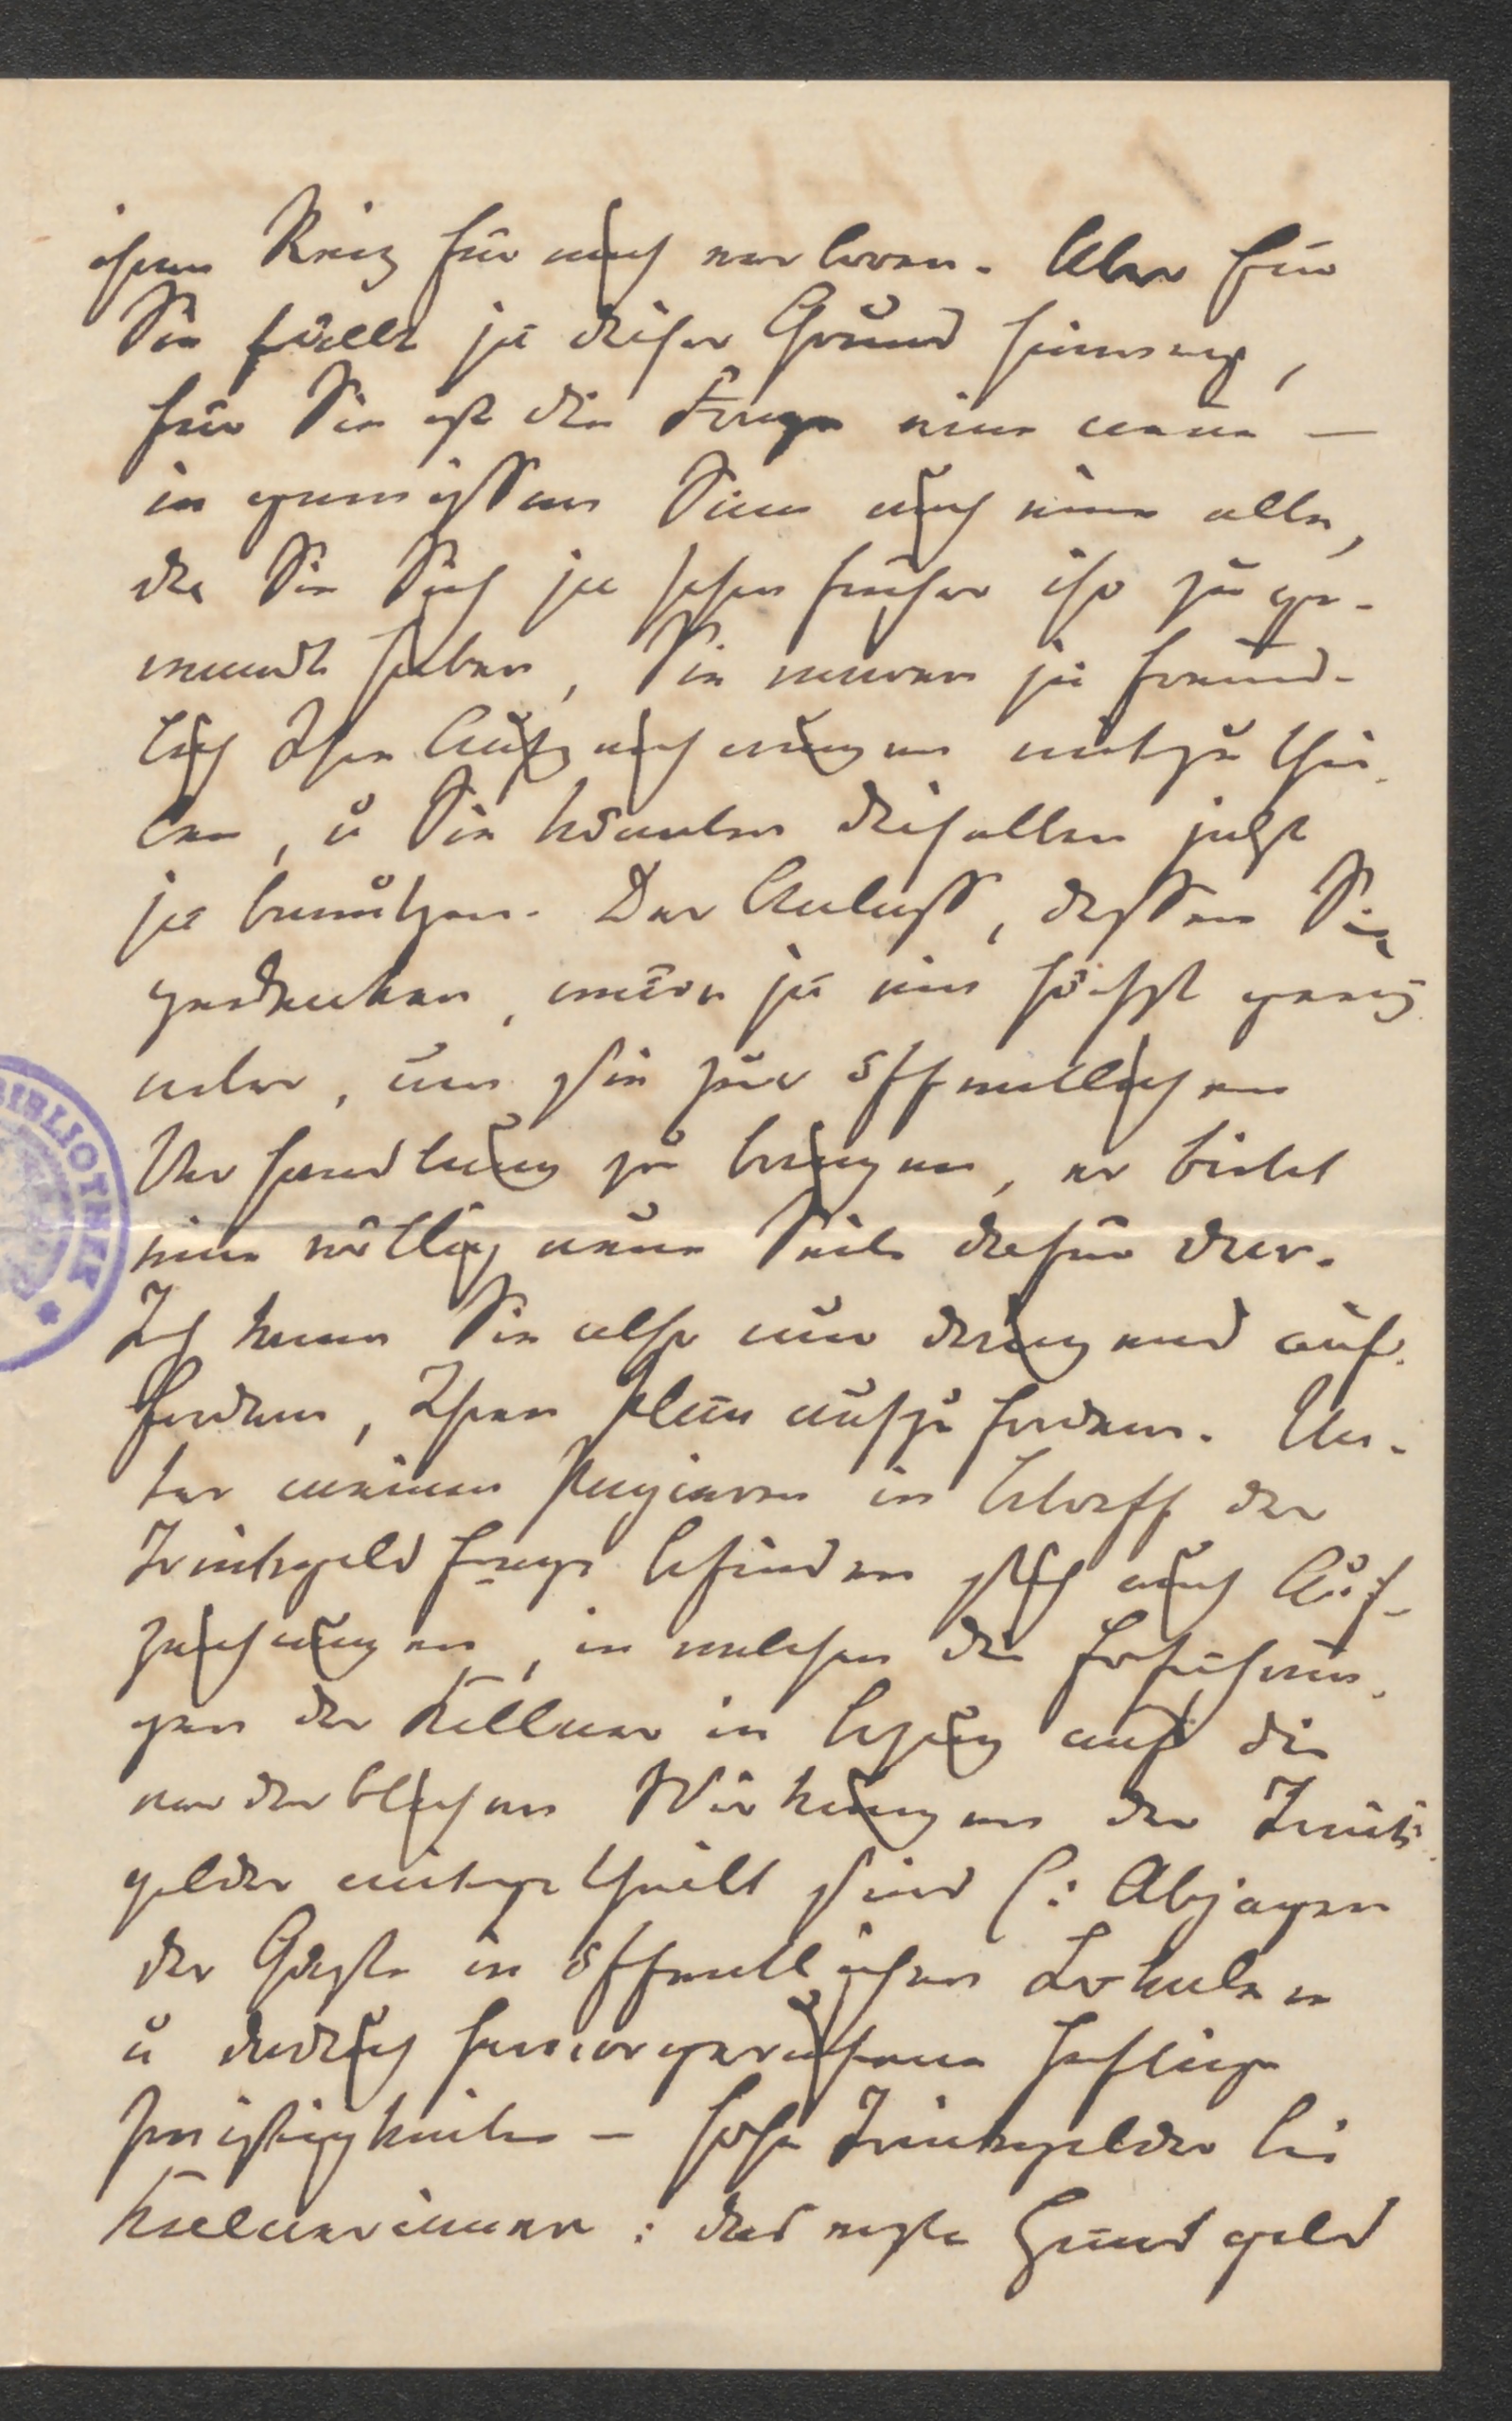 ihren Reiz für mich verloren. Aber für
Sie fällt ja dieser Grund hinweg,
für Sie ist die Frage eine neue –
in gewissem Sinn auch eine alte,
da Sie Sich ja schon früher ihr zuge-
wandt haben, Sie waren ja freund-
lich Ihre Aufzeichnungen mitzuthei-
len, u Sie könnten dieselben jetzt
ja benutzen. Der Anlass, dessen Sie
gedenken, wäre ja ein höchst geeig-
neter, um sie zur öffentlichen
Verhandlung zu bringen, er bietet
eine völlig neue Seite dafür dar.
Ich kann Sie also nur dringend auf-
fordern, Ihren Plan
Un-
ter meinen Papieren in Betreff der
Trinkgeldfrage befinden sich auch Auf-
zeichnungen, in welchen die Erfahrun-
gen der Kellner in Bezug auf die
verderblichen Wirkungen der Trink-
gelder mitgetheilt sind (: Abjagen
der Gäste in öffentlichen Lokalen
u dadurch hervorgerufene heftige
Zwistigkeiten – hohe Trinkgelder bei
Kellnerinnen: das erste Handgeld
BIBLIOTHEK